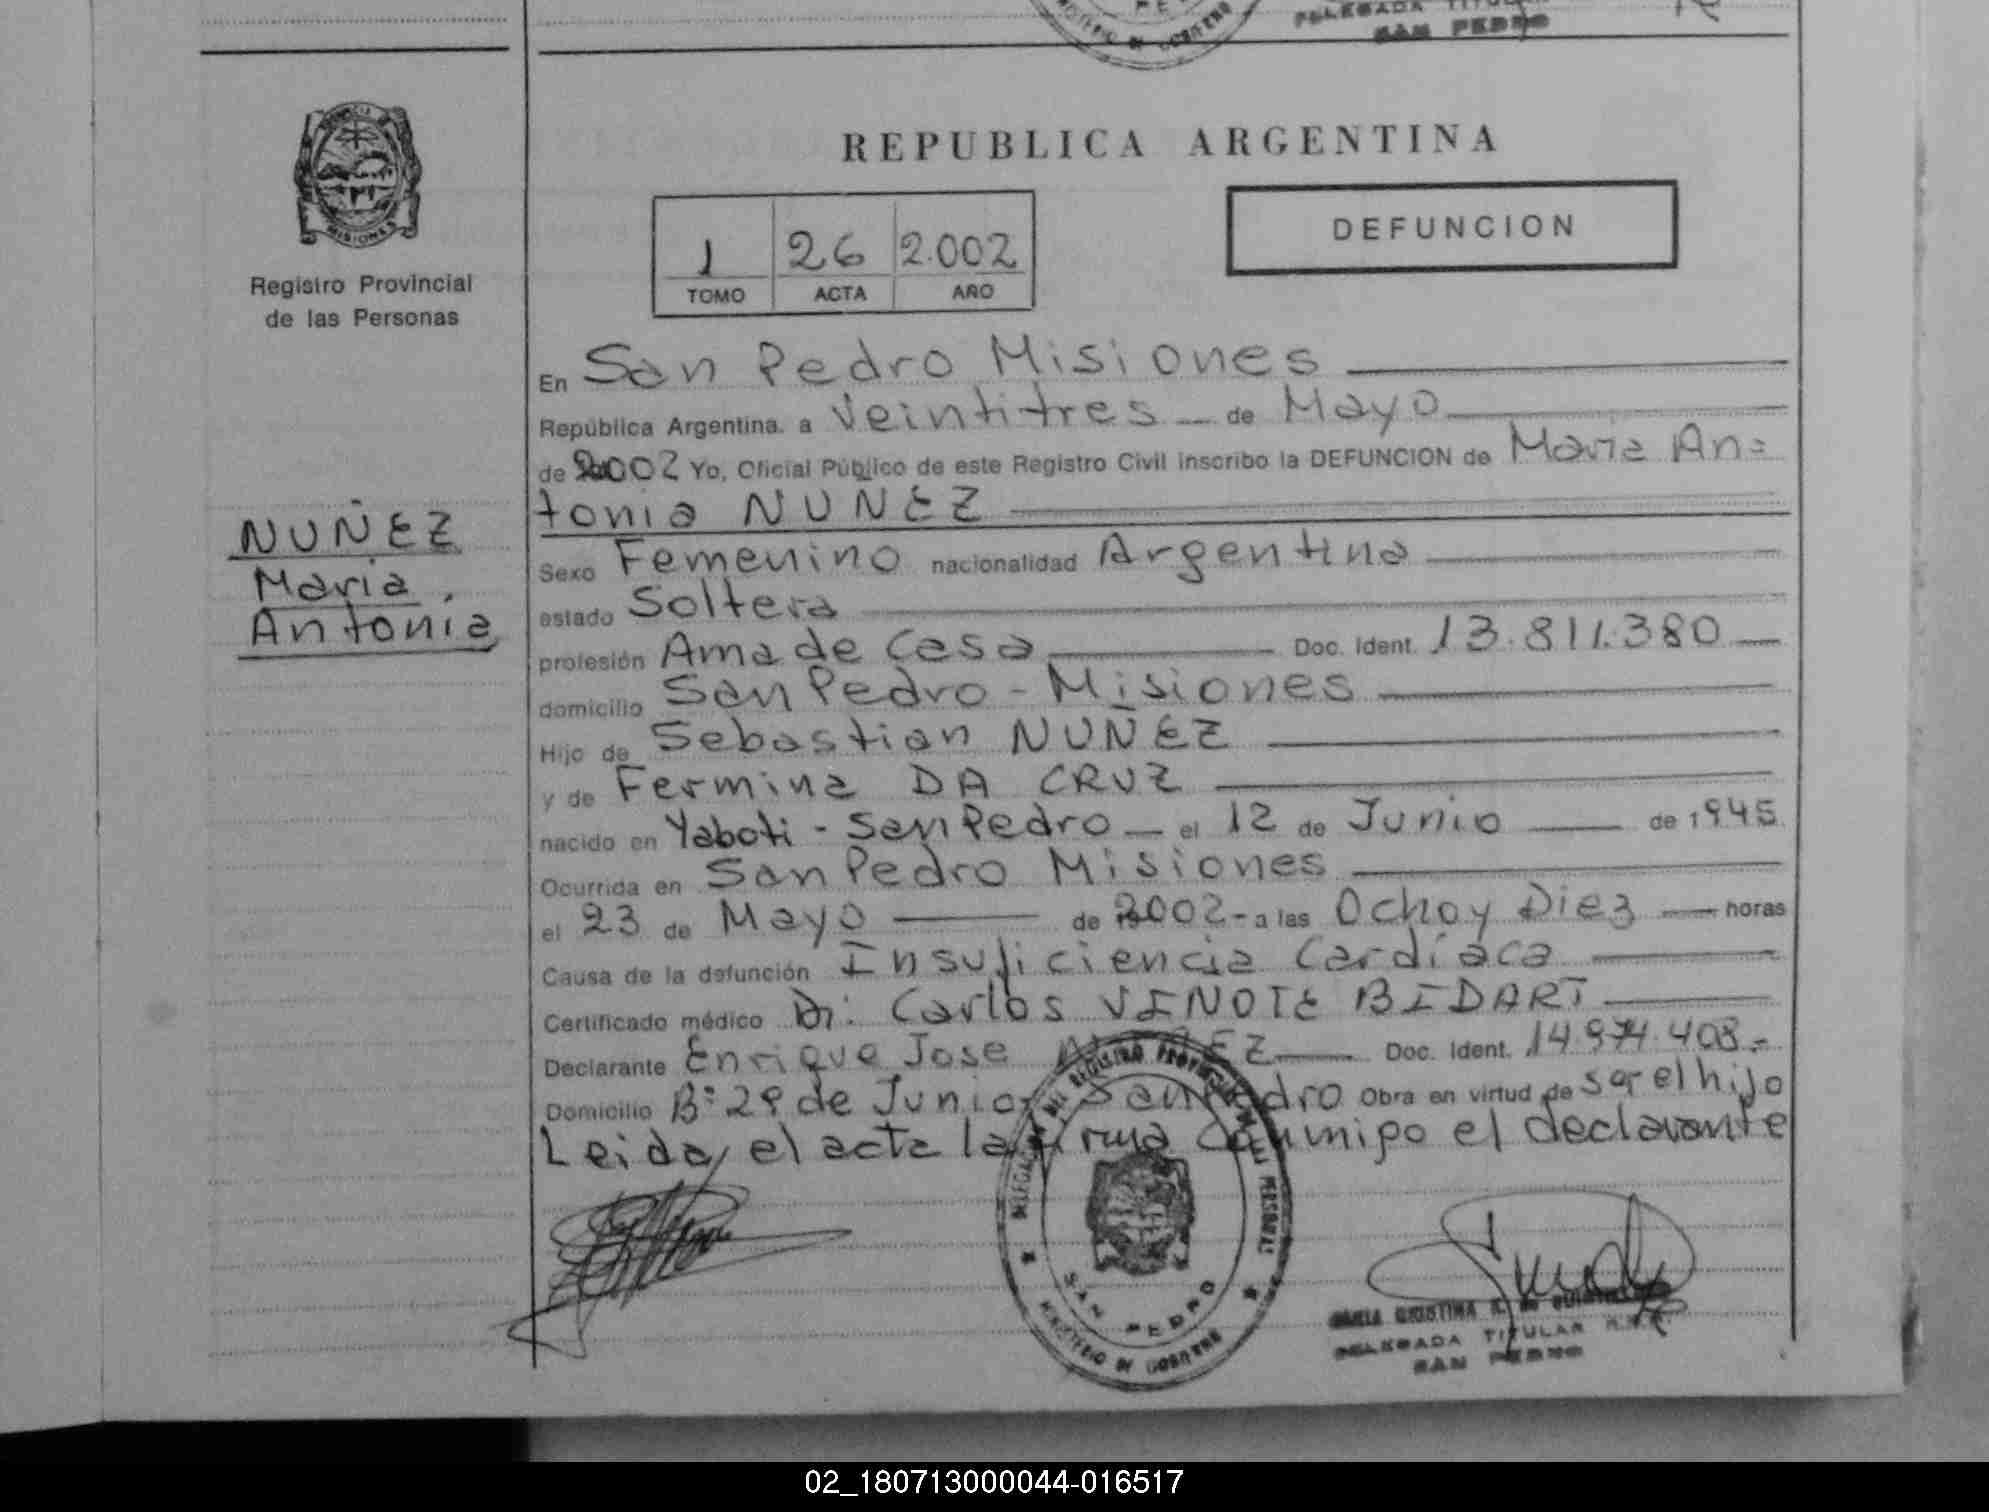 PE
MINISTERIO DE GOBIERNO
DELEGADA TITULAR
SAN PEDRO
PROVINCIA DE
MISIONES
Registro Provincial
de las Personas
REPUBLICA ARGENTINA
1 26 2.002
TOMO ACTA AÑO
DEFUNCION
En San Pedro Misiones
República Argentina. a Veintitres de Mayo
de 2002 Yo, Oficial Público de este Registro Civil inscribo la DEFUNCION de Maria An=
tonia NUÑEZ
NUÑEZ
Maria
Antonia
Sexo Femenino nacionalidad Argentina
estado Soltera
profesión Ama de Casa Doc. Ident. 13.811.380
domicilio San Pedro - Misiones
Hijo de Sebastian NUÑEZ
y de Fermina DA CRUZ
nacido en Yaboti - San Pedro el 12 de Junio de 1945
Ocurrida en San Pedro Misiones
el 23 de Mayo de 2002 - a las Ocho y Diez horas
Causa de la defunción Insuficiencia Cardíaca
Certificado médico Dr: Carlos VINOTE BIDART
Declarante Enrique Jose NUÑEZ Doc. Ident. 14.974.408.-
Domicilio B: 29 de Junio, San Pedro Obra en virtud de ser el hijo
Leida el acta la firma conmigo el declarante
DELEGACION DEL REGISTRO PROVINCIAL DE LAS PERSONAS
SAN PEDRO
MINISTERIO DE GOBIERNO
DELEGADA TITULAR
SAN PEDRO
02_180713000044-016517